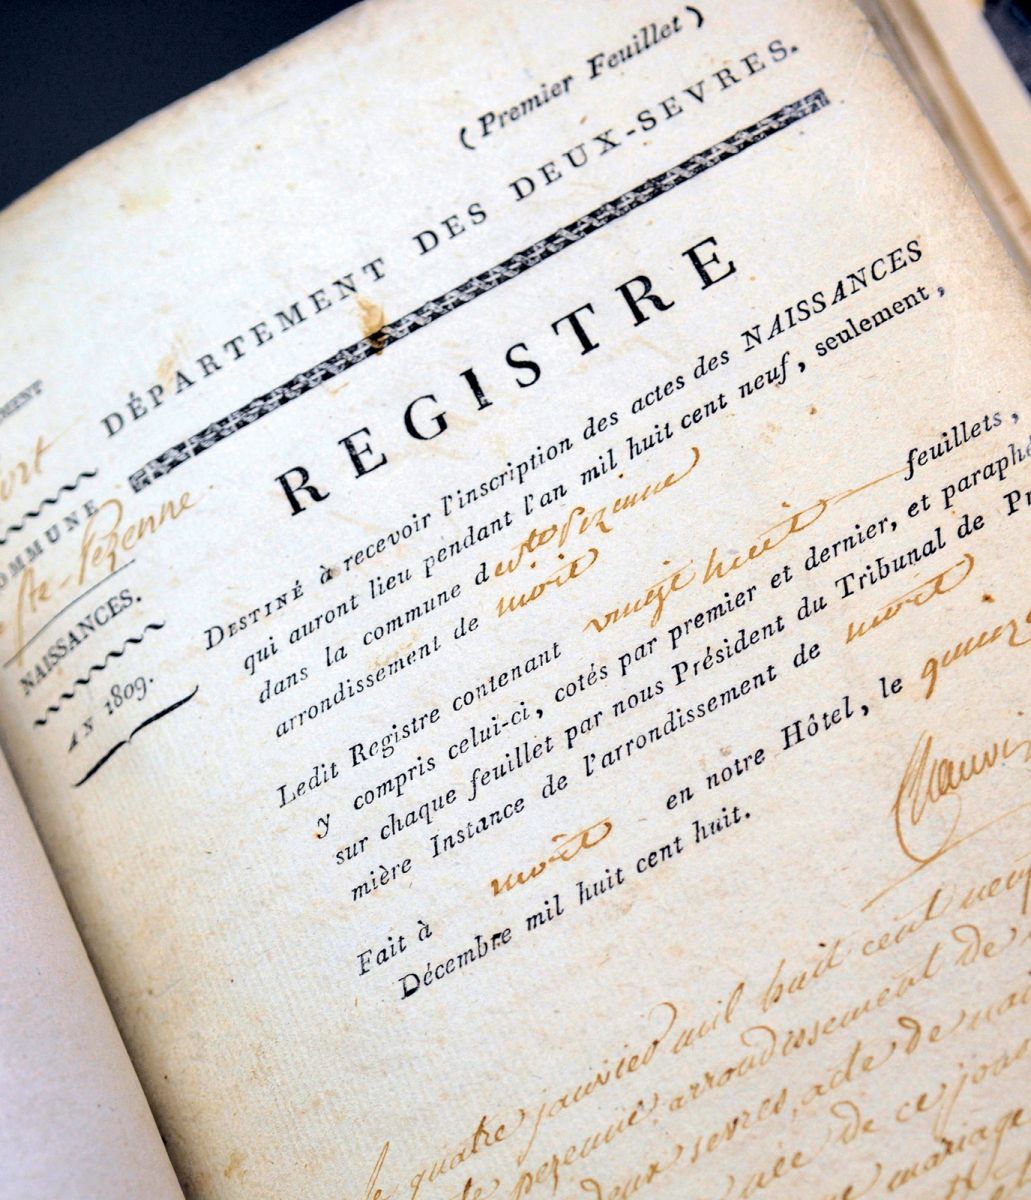 (Premier Feuillet)
DÉPARTEMENT DES DEUX-SEVRES.
COMMUNE
Ste-Pezenne
NAISSANCES.
AN 1809.
REGISTRE
DESTINÉ à recevoir l'inscription des actes des NAISSANCES
qui auront lieu pendant l'an mil huit cent neuf, seulement,
dans la commune de Ste pezenne
arrondissement de niort
Ledit Registre contenant vingt huit feuillets,
y compris celui-ci, cotés par premier et dernier, et paraphé
sur chaque feuillet par nous Président du Tribunal de Pr
mière Instance de l'arrondissement de niort
Fait à niort en notre Hôtel, le quinze
Décembre mil huit cent huit.
le quatre janvier mil huit cent neuf
pezenne arrondissement de
deux sevres, acte de
née de ce jour
mariage